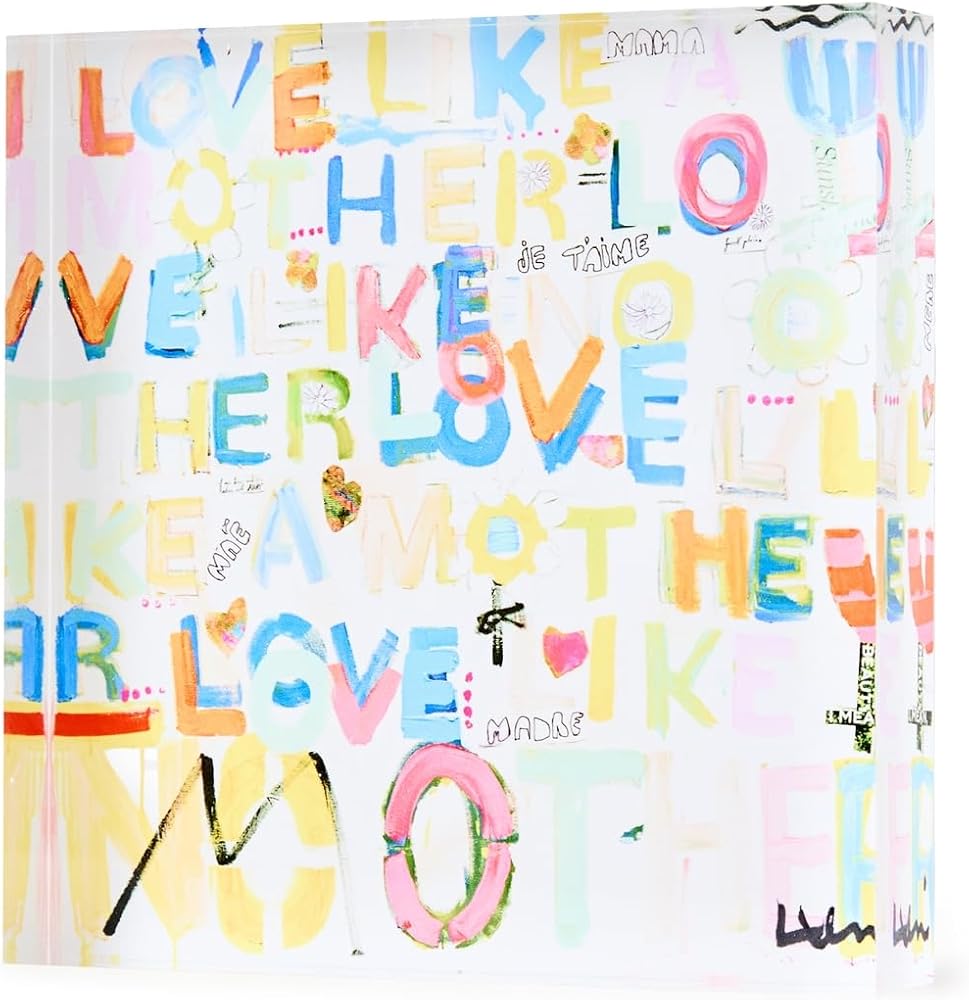 I LOVE LIKE A
MAMA
MOTHER LO
JE T'AIME
VE LIKE MO
THER LOVE L
LIKE A MOTHER
MÂE
R LOVE LIKE
MADRE
MOTHER